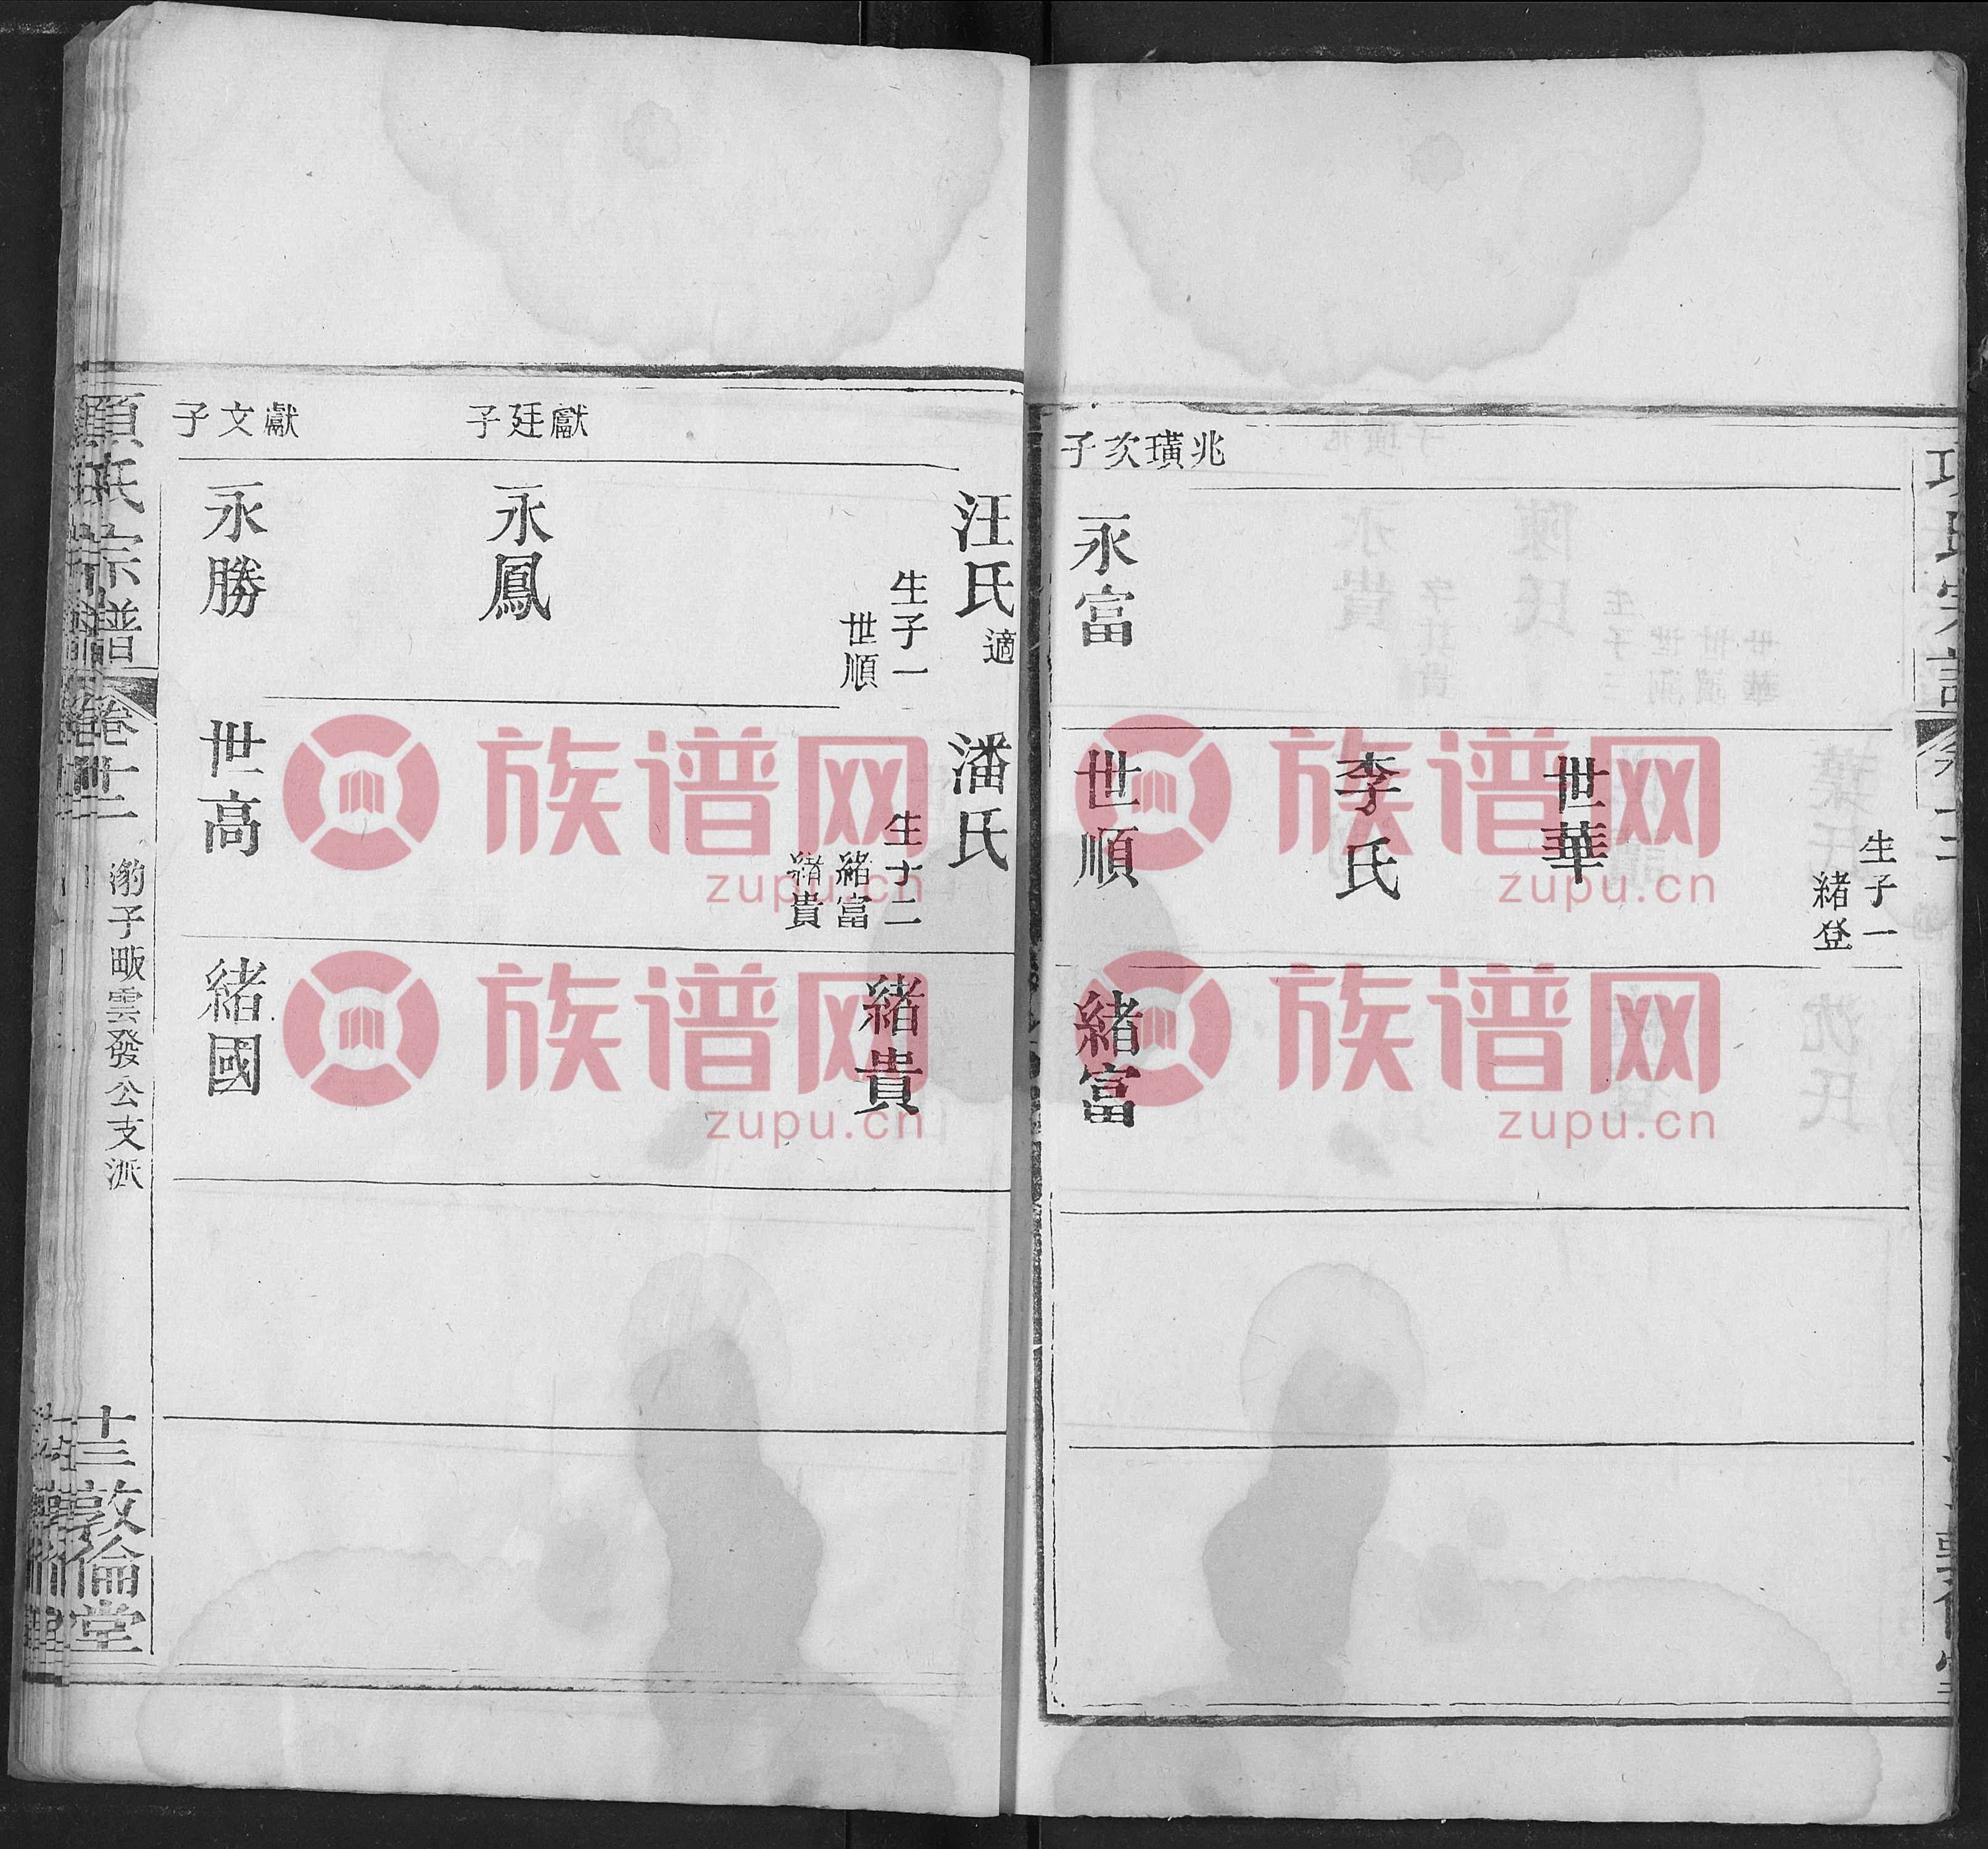 生子一
緒登
世華
李氏
兆璜次子
永富
世順
緒富
汪氏適
生子一
世順
潘氏
生子二
緒富
緒貴
緒貴
獻廷子
永鳳
獻文子
永勝
世高
緒國
氏宗譜
卷十二
子畈雲發公支派
十三
敦倫堂
族谱网
zupu.cn
族谱网
zupu.cn
族谱网
zupu.cn
族谱网
zupu.cn